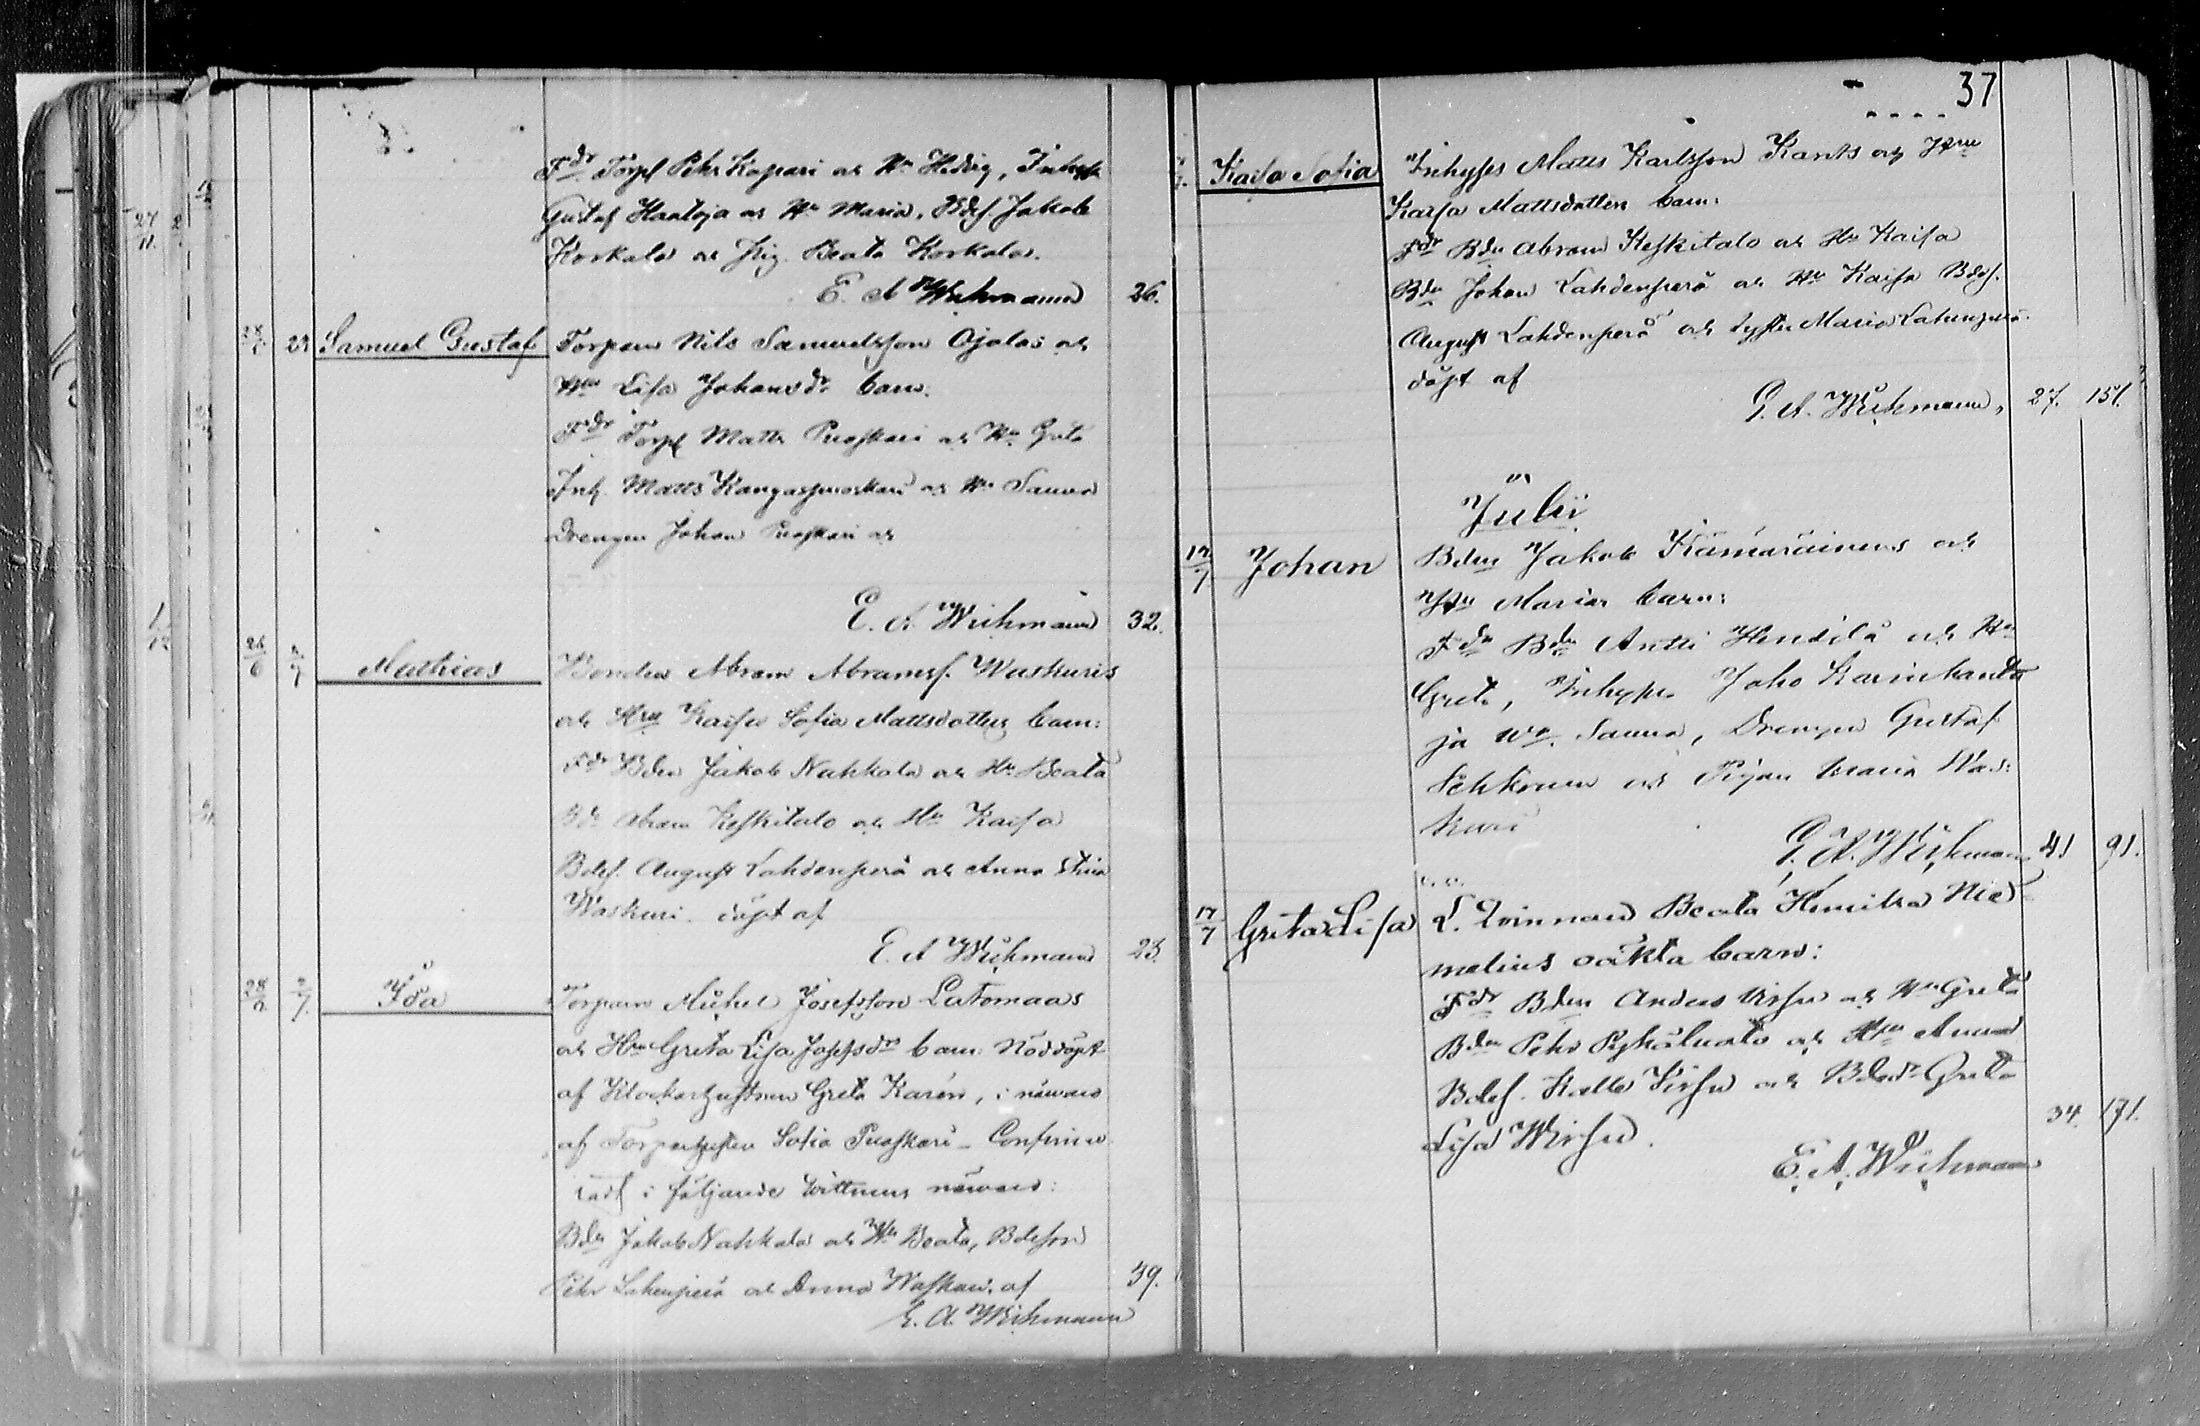 Fdr Torp. Pehr Kaspari och Hu Hedvig, Inhys
Gustaf Haataja och Hu Maria, Bdes. Jakob
Korkala och Pig. Beata Korkala.
E. A Wichmann 26.
28/6 29 Samuel Gustaf Torparen Nils Samuelsson Ojalas och
Hu Lisa Johansdr barn.
Fdr Torp Matts Puoskari och Hu Greta
Inh. Matts Kangaspuoskari och Hu Sanna
Drengen Johan Puoskari och
E. A. Wichmann 32.
26/6 2/7 Mathias Bonden Abram Abramss. Waskuris
och Hru Kaisa Sofia Mattsdotters barn:
Fdr Bdn Jakob Nahkala och Hu Beata
Bdn Abram Keskitalo och Hu Kaisa
Bdes. August Lahdenperä och Anna Stina
Waskuri. döpt af
E. A Wichmann 23.
28/6 2/7 Ida Torparen Michel Josefsson Latomaas
och Hru Greta Lisa Josefsdrs barn. Nöddöpt
af Klockarhustrun Greta Karén, i närvaro
af Torparhustrun Sofia Puoskari - Confirme
radt i följande wittnens närvaro:
Bdn Jakob Nahkala och Hu Beata, Bdesson
Pehr Lahenperä och Anna Waskari, af 39.
E. A. Wichmann
37
Kaisa Sofia Inhyses Matts Karlsson Kants och Hru
Kaisa Mattsdotters barn:
Fdr Bdn Abram Keskitalo och Hu Kaisa
Bdn Johan Lahdenperä och Hu Kaisa Bdes.
August Lahdenperä och Syster Maria Lahenperä.
döpt af
E. A. Wichmann, 27. 151.
Julii
17/7 Johan Bdn Jakob Kämäräinens och
Hru Maria barn:
Fdr Bdn Antti Hensilä och Hu
Greta, Inhyses Joho Karinkanta
ja Wo. Sanna, Drengen Gustaf
och Pigan Maria Was-
kuri
E. A. Wichmann 41 91.
17/7 Greta Lisa L. Qvinnan Beata Henrika Nie-
melius oäkta barn:
Fdr Bdn Anders Wirsu och Hu Greta
Bdn Pehr Pykäluoto och Hru Anna
Bdes. Kalle Wirsu och Bdedr Greta
Lisa Wirsu. 34. 171.
E. A. Wichmann